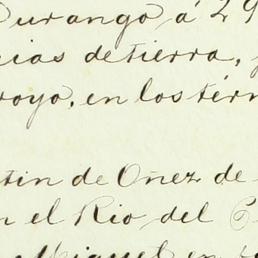 Durango á 29
cias de tierra, y
royo, en los térm
tin de Oñez de
n el Rio del
Miguel en